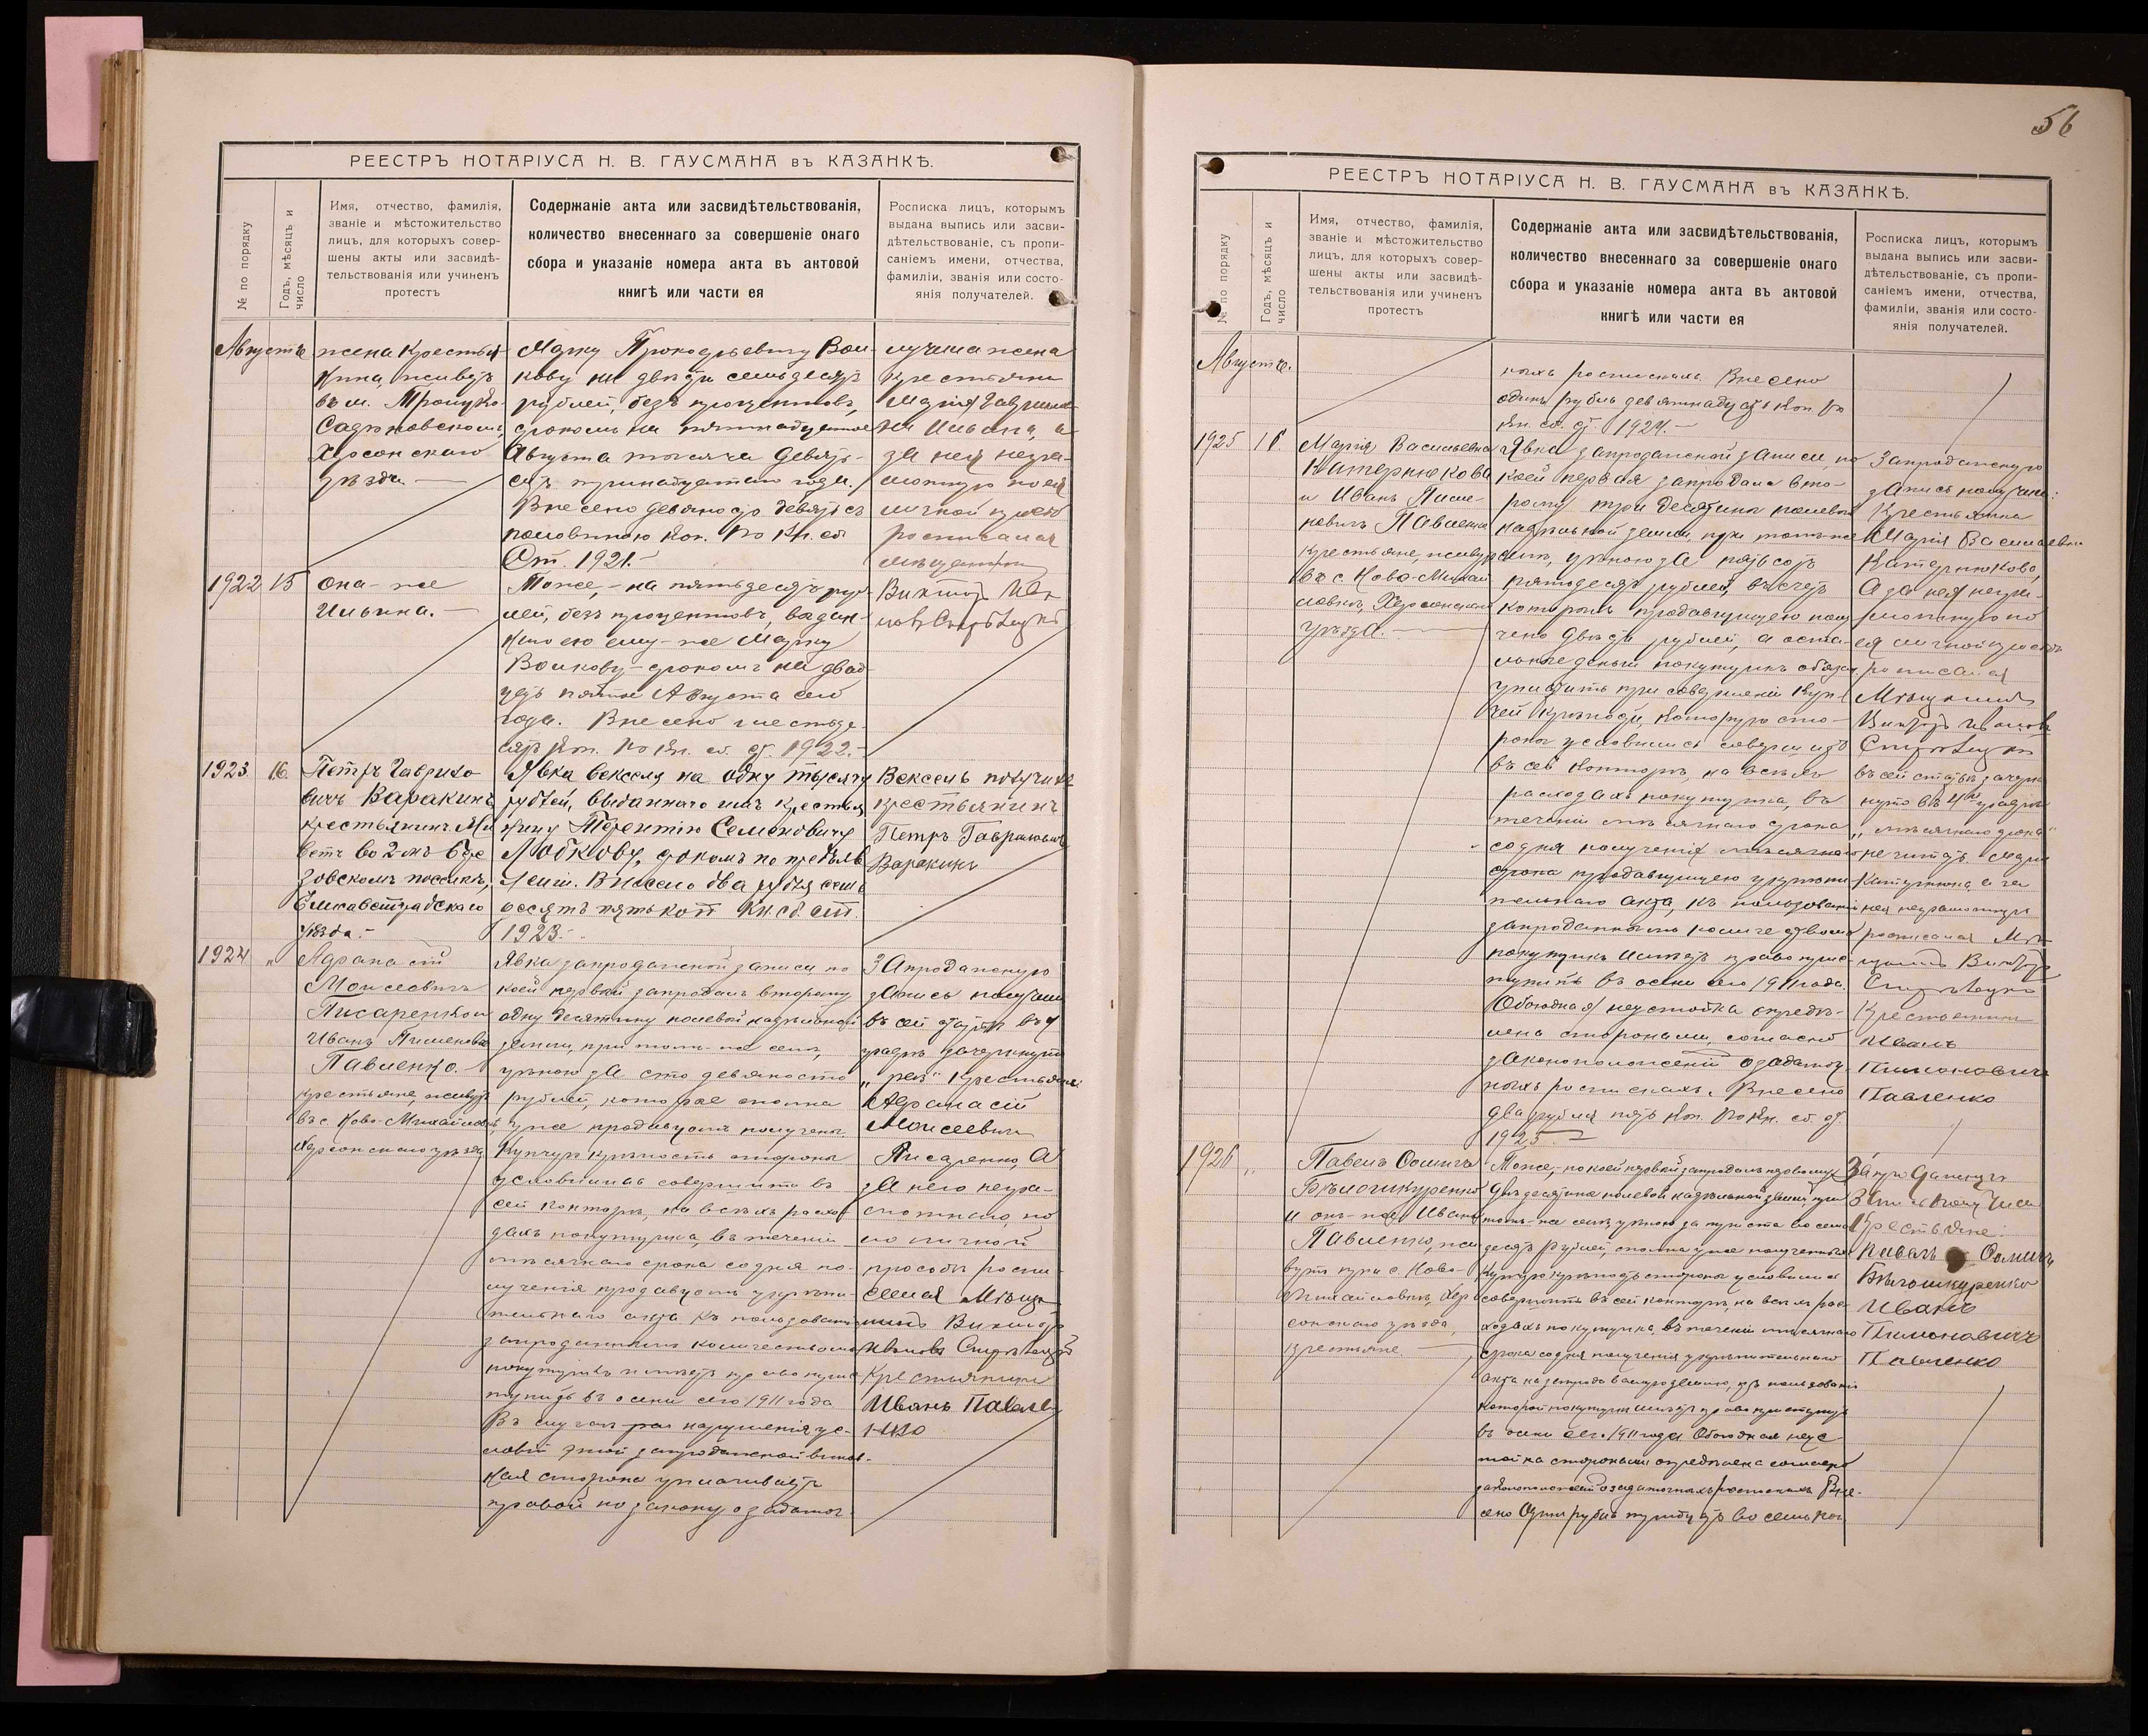 56
РЕЕСТРЪ НОТАРІУСА Н. В. ГАУСМАНА въ КАЗАНКѢ.
№ по порядку
Годъ, мѣсяцъ и число
Имя, отчество, фамилія,
званіе и мѣстожительство
лицъ, для которыхъ совер-
шены акты или засвидѣ-
тельствованія или учиненъ
протестъ
Содержаніе акта или засвидѣтельствованія,
количество внесеннаго за совершеніе онаго
сбора и указаніе номера акта въ актовой
книгѣ или части ея
Росписка лицъ, которымъ
выдана выпись или засви-
дѣтельствованіе, съ пропи-
саніемъ имени, отчества,
фамиліи, званія или состо-
янія получателей.
Августъ
жена крестья-
нина, живутъ
въ м. Троицко-
Сафоновскомъ,
Херсонскаго
уѣзда.
Марку Прокофьевичу Вол-
кову на двѣсти семьдесятъ
рублей, безъ процентовъ,
срокомъ на пятнадцатое
Августа тысяча девять-
сотъ тринадцатаго года.
Внесено девяносто девять съ
половиною коп. по кн. сб.
Ст. 1921.
лучила жена
крестьянина
Марія Гаврилов-
на Ильина, а
за нея негра-
мотную по ея
личной просьбѣ
росписался
мѣщанинъ
1922 15
Она-же
Ильина.
Тоже, на пятьдесятъ руб-
лей, безъ процентовъ, выдан-
ному ею ему-же Марку
Волкову срокомъ на двад-
цать пятое Августа сего
года. Внесено шестьде-
сятъ коп. по кн. сб. ст. 1922.
Викторъ Ива-
новъ
1923 16.
Петръ Гаврило-
вичъ Варакинъ
крестьянинъ жи-
ветъ во 2-мъ Бре-
зовскомъ поселкѣ,
Елисаветградскаго
уѣзда.
Явка векселя, на одну тысячу
рублей, выданнаго имъ крестья-
нину Терентію Семеновичу
Лобкову, срокомъ по предъяв-
леніи. Внесено два рубля семь-
десятъ пять коп. Кн. сб. ст.
1923.
Вексель получилъ
крестьянинъ
Петръ Гавриловъ
Варакинъ
1924 "
Афанасій
Моисеевичъ
Писаренко и
Иванъ Пименовичъ
Павленко
крестьяне, живутъ
въ с. Ново-Михайловкѣ,
Херсонскаго уѣзда.
Явка запроданской записи по
коей первый запродалъ второму
одну десятину полевой надѣльной
земли, при томъ-же селѣ,
цѣною за сто девяносто
рублей, которые сполна
уже продавцомъ получены.
Купчую крѣпость стороны
условились совершить въ
сей конторѣ, на всѣхъ расхо-
дахъ покупщика, въ теченіи
мѣсячнаго срока со дня по-
лученія продавцомъ укрѣпи-
тельнаго акта. Къ пользованію
запроданнымъ количествомъ
покупщикъ имѣетъ право присту-
пить въ осени сего 1911 года
Въ случаѣ раз нарушенія ус-
ловій этой запроданской винов-
ная сторона уплачиваетъ
правой по закону о задаточ-
Запроданскую
запись получили
въ сей статьѣ въ 4
графѣ зачеркнуто
„раз" Крестьяне:
Афанасій
Моисеевичъ
Писаренко, а
за него негра-
мотнаго, по
его личной
просьбѣ роспи-
сался Мѣща-
нинъ Викторъ
Ивановъ
Крестьянинъ
Иванъ Павле
нко
РЕЕСТРЪ НОТАРІУСА Н. В. ГАУСМАНА въ КАЗАНКѢ.
№ по порядку
Годъ, мѣсяцъ и число
Имя, отчество, фамилія,
званіе и мѣстожительство
лицъ, для которыхъ совер-
шены акты или засвидѣ-
тельствованія или учиненъ
протестъ
Содержаніе акта или засвидѣтельствованія,
количество внесеннаго за совершеніе онаго
сбора и указаніе номера акта въ актовой
книгѣ или части ея
Росписка лицъ, которымъ
выдана выпись или засви-
дѣтельствованіе, съ пропи-
саніемъ имени, отчества,
фамиліи, званія или состо-
янія получателей.
Августъ.
ныхъ роспискахъ. Внесено
одинъ рубль девятнадцать коп. по
кн. сб. ст. 1924.
1925 16.
Марія Васильевна
Катернюкова
и Иванъ Пиме-
новичъ Павленко
крестьяне, живутъ
въ с. Ново-Михай-
ловкѣ, Херсонскаго
уѣзда.
Явка запроданской записи, по
коей первая запродала вто-
рому три десятины полевой
надѣльной земли, при томъ-же
селѣ, цѣною за пятьсотъ
пятьдесятъ рублей, въ счетъ
которыхъ продавщицею полу-
чено двѣсти рублей, а осталь-
ные деньги покупщикъ обязанъ
уплатить при совершеніи куп-
чей крѣпости, которую сто-
роны условились совершить
въ сей конторѣ, на всѣхъ
расходахъ покупщика, въ
теченіи мѣсячнаго срока
со дня полученія мѣсячнаго
срока продавщицею укрѣпи-
тельнаго акта, къ пользованію
запроданнымъ количествомъ
покупщикъ имѣетъ право присту-
пить въ осени сего 1911 года.
Обоюдная неустойка опредѣ-
лена сторонами, согласно
законоположеній о задаточ-
ныхъ роспискахъ. Внесено
два рубля пять коп. по кн. сб. ст.
1925.
Запроданскую
запись получили:
Крестьянка
Марія Васильевна
Катернюкова,
а за нея негра-
мотную по
ея личной просьбѣ
росписался
Мѣщанинъ
Викторъ Ивановъ
въ сей статьѣ зачерк-
нуто въ 4й графѣ
„мѣсячнаго срока"
не читать. Марія
Катернюкова, а за
нея неграмотную
росписался Мѣ-
щанинъ Викторъ
Крестьянинъ
Иванъ
Пимоновичъ
Павленко
1926 "
Павелъ Фомичъ
Бѣлошкуренко
и онъ-же Иванъ
Павленко, жи-
вутъ при с. Ново-
Михайловкѣ, Хер-
сонскаго уѣзда,
крестьяне.
Тоже, по коей первый запродалъ
двѣ десятины полевой надѣльной земли, при
томъ-же селѣ цѣною за триста восемь-
десятъ рублей, сполна уже полученные
Купчую крѣпость стороны условились
совершить въ сей конторѣ, на всѣхъ рас-
ходахъ покупщика, въ теченіи мѣсячнаго
срока со дня полученія укрѣпительнаго
акта на запродаваемую землю, къ пользованію
которой покупщикъ имѣетъ право приступить
въ осени сего 1911 года. Обоюдная неус-
тойка сторонами опредѣлена согласно
законоположеній о задаточныхъ роспискахъ. Вне-
сено Одинъ рубль тридцать восемь коп.
Запроданскую
Запись получили
Крестьяне:
Павелъ Фомичъ
Бѣлошкуренко
Иванъ
Пимоновичъ
Павленко